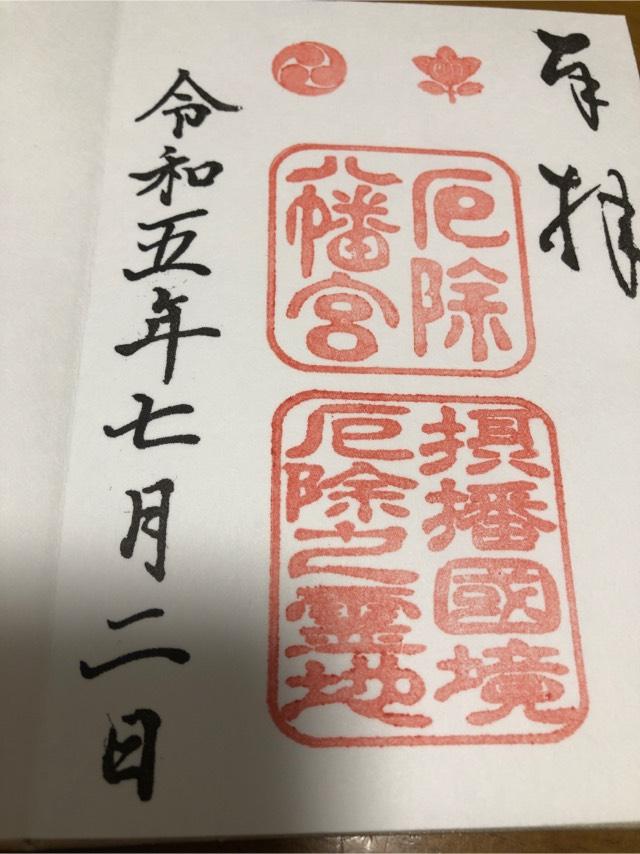 奉拝
厄除
八幡宮
摂播國境
厄除之霊地
令和五年七月二日